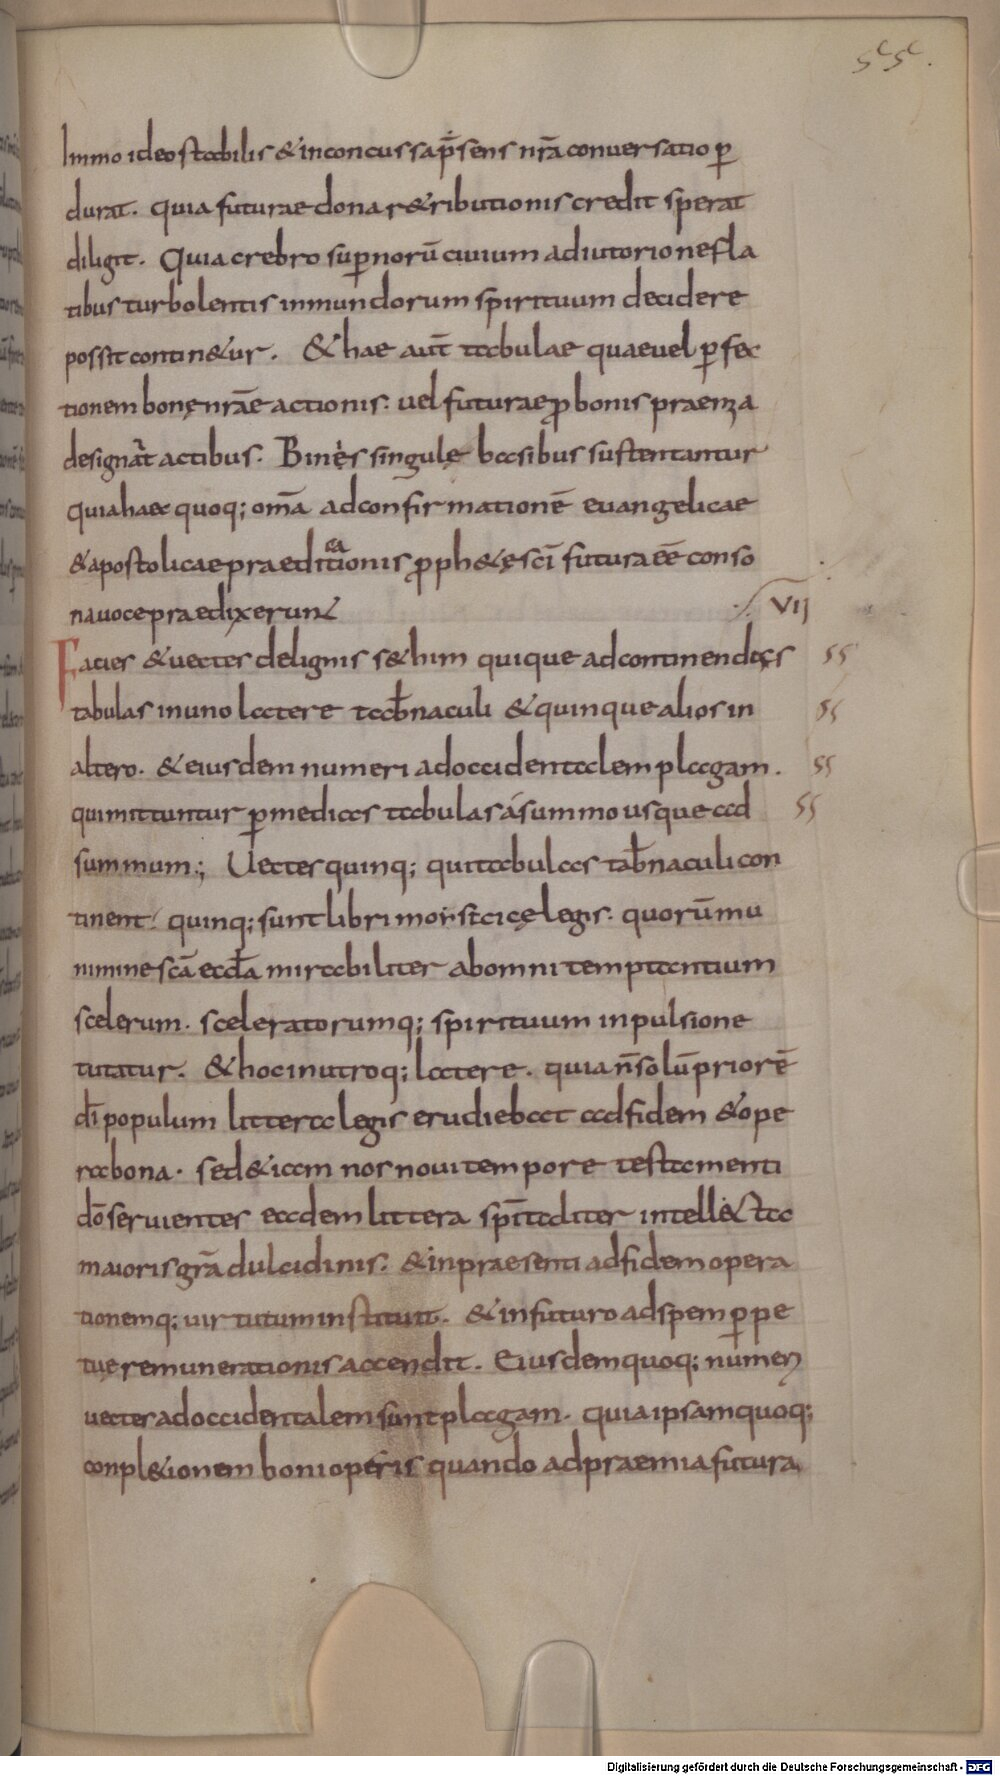 scsc.
Immo ideo stabilis & inconcussa p̄sens nr̄a conuersatio ꝑ
durat. quia futurae dona r&ributionis credit sperat
diligit. Quia crebro suꝑnorū ciuium adiutorio ne fla
tibus turbolentis inmundorum spirituum decidere
possit contin&ur. & hae aūt tabulae quae uel ꝑfec
tionem bonę nrāe actionis. uel futurae ꝓ bonis praemia
designāt actibus. Binęs singulę basibus sustentantur
quia haec quoq; omā ad confirmationē euangelicae
& apostolicae praeditionis ꝓph&ę scī futura eē conso
na uoce praedixerunt
VII
Facies & uectes de lignis s&him quinque ad continendęs
tabulas in uno latere tab̄naculi & quinque alios in
altero. & eiusdem numeri ad occidentalem plagam.
qui mittuntur ꝑ medias tabulas á summo usque ad
summum; Uectes quinq; qui tabulas tab̄naculi con
tinent. quinq; sunt libri mosaicę legis. quorū mu
nimine scā eccła mirabiliter ab omni temptantium
scelerum. sceleratorumq; spirituum inpulsione
tutatur. & hoc in utroq; latere. quia n̄ solū priorē
dī populum littera legis erudiebat ad fidem & ope
ra bona. sed & iam nos noui tempore testamenti
dō seruientes eadem littera spīitaliter intellecta
maioris grā dulcidinis. & in praesenti ad fidem opera
tionemq; uirtutum instituit. & in futuro ad spem ꝑpe
tuę remunerationis accendit. Eiusdem quoq; numeri
uectes ad occidentalem sunt plagam. quia ipsam quoq;
conpl&ionem boni operis quando ad praemia futura
ss
ss
ss
ss
Digitalisierung gefördert durch die Deutsche Forschungsgemeinschaft - DFG